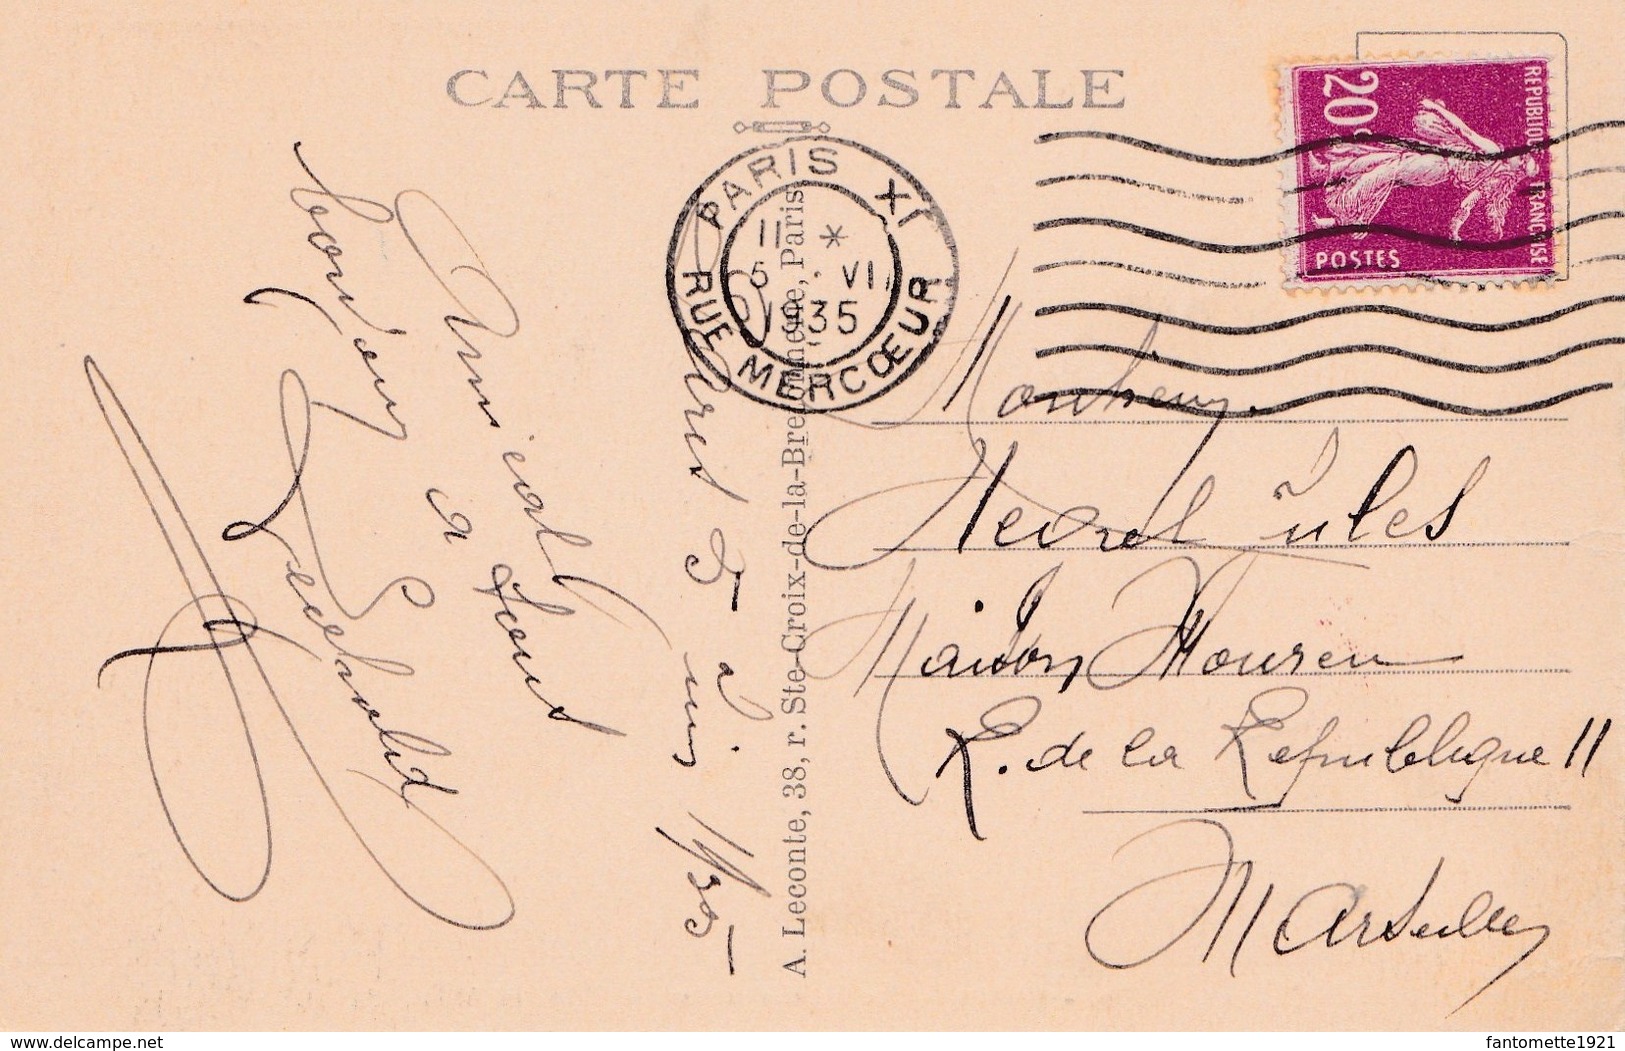 CARTE POSTALE
RÉPUBLIQUE FRANÇAISE
20c
POSTES
PARIS XI
11 *
5 . VI
1935
RUE MERCŒUR
A. Leconte, 38, r. Ste-Croix-de-la-Bretonnerie, Paris
Paris 5 juin 1935
Amical
bonjour
a tous
Monsieur
Jules
Maison Mouren
R. de la République 11
Marseille
www.delcampe.net
fantomette1921